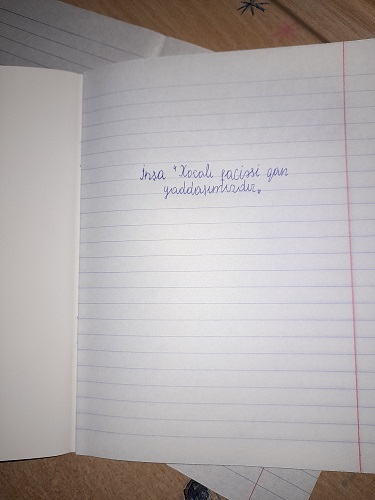 İnşa "Xocalı faciəsi qan
yaddaşımızdır„